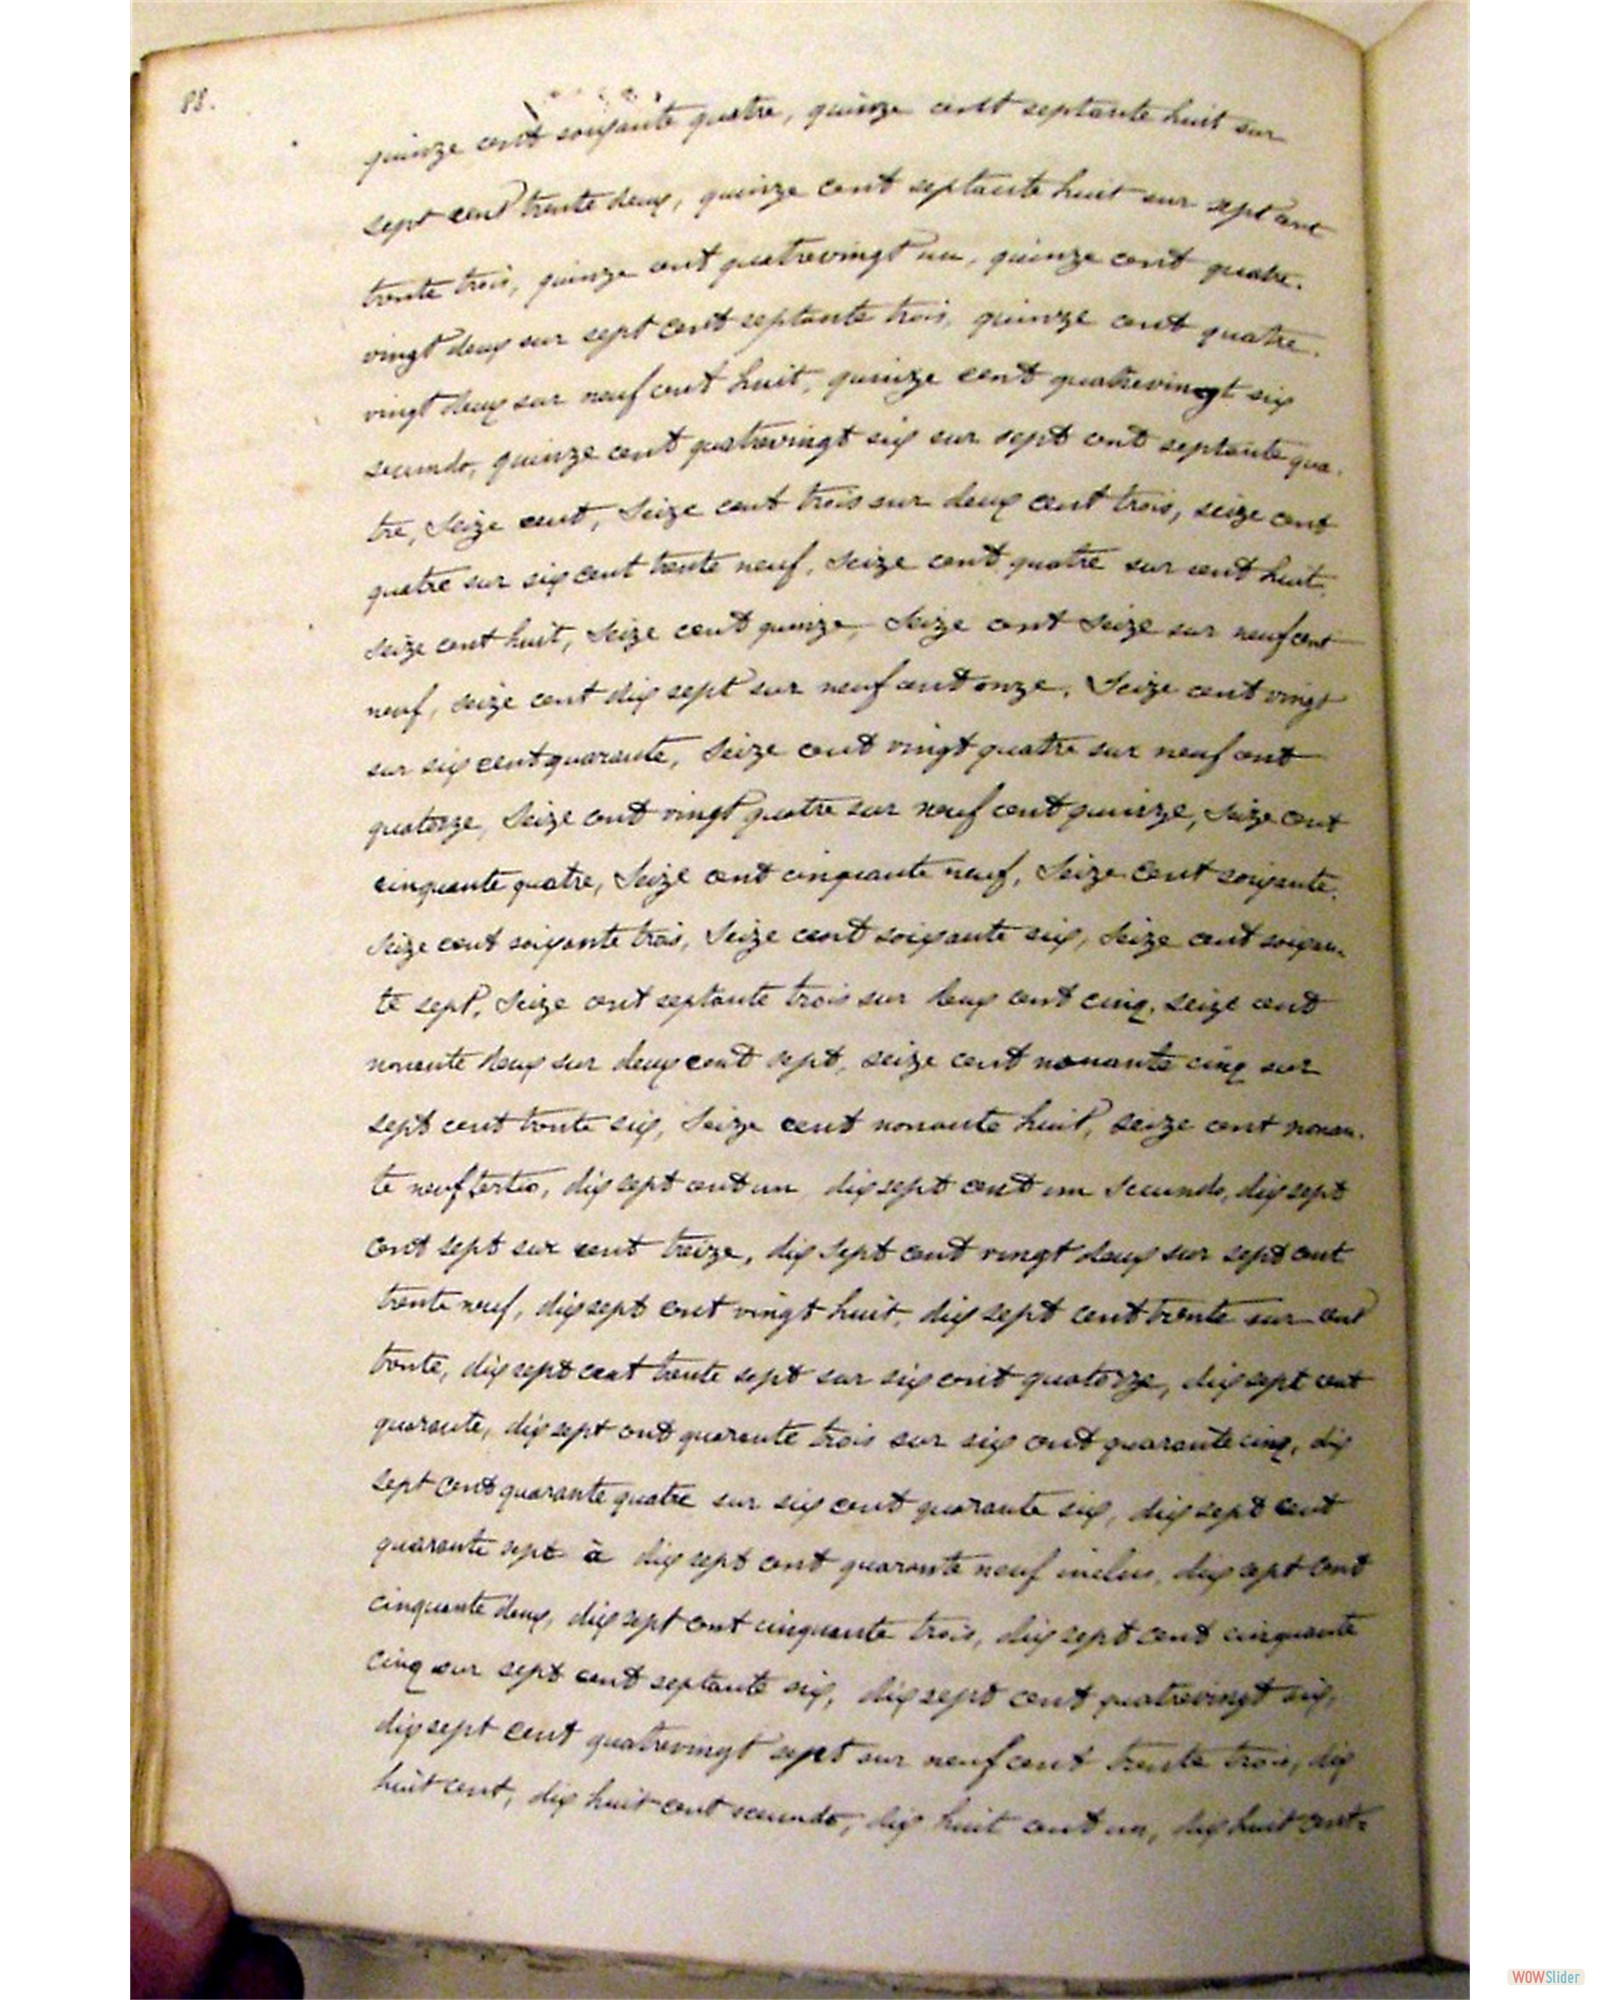 88.
quinze cent soixante quatre, quinze cent septante huit sur
sept cent trente deux, quinze cent septante huit sur sept cent
trente trois, quinze cent quatrevingt un, quinze cent quatre.
vingt deux sur sept cent septante trois, quinze cent quatre.
vingt deux sur neuf cent huit, quinze cent quatrevingt six
secundo, quinze cent quatrevingt six sur sept cent septante qua.
tre, Seize cent, Seize cent trois sur deux cent trois, seize cent
quatre sur six cent trente neuf, Seize cent quatre sur cent huit,
seize cent huit, Seize cent quinze, Seize cent Seize sur neuf cent
neuf, seize cent dix sept sur neuf cent onze, Seize cent vingt
sur six cent quarante, Seize cent vingt quatre sur neuf cent
quatorze, Seize cent vingt quatre sur neuf cent quinze, Seize cent
cinquante quatre, Seize cent cinquante neuf, Seize cent soixante,
Seize cent soixante trois, Seize cent soixante six, Seize cent soixan.
te sept, Seize cent septante trois sur deux cent cinq, seize cent
nonante deux sur deux cent sept, seize cent nonante cinq sur
sept cent trente six, Seize cent nonante huit, seize cent nonan.
te neuf tertio, dix sept cent un, dix sept cent un Secundo, dix sept
cent sept sur cent treize, dix sept cent vingt deux sur sept cent
trente neuf, dix sept cent vingt huit, dix sept cent trente sur cent
trente, dix sept cent trente sept sur six cent quatorze, dix sept cent
quarante, dix sept cent quarante trois sur six cent quarante cinq, dix
sept cent quarante quatre sur six cent quarante six, dix sept cent
quarante sept à dix sept cent quarante neuf inclus, dix sept cent
cinquante deux, dix sept cent cinquante trois, dix sept cent cinquante
cinq sur sept cent septante six, dix sept cent quatrevingt six,
dix sept cent quatrevingt sept sur neuf cent trente trois, dix
huit cent, dix huit cent secundo, dix huit cent un, dix huit cent-
WOWSlider